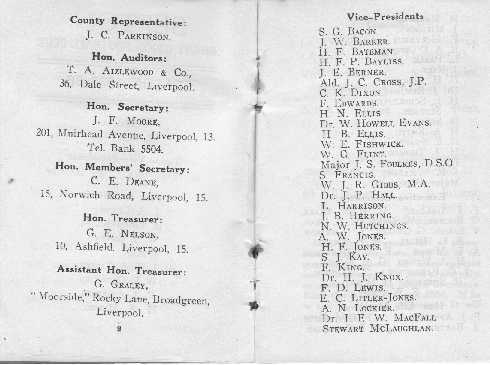 County Representative:
J. C. Parkinson.
Hon. Auditors:
T. A. Aizlewood & Co.,
36, Dale Street, Liverpool.
Hon. Secretary:
J. F. Moore,
201, Muirhead Avenue, Liverpool, 13.
Tel. Bank 5504.
Hon. Members' Secretary:
C. E. Deane,
15, Norwich Road, Liverpool, 15.
Hon. Treasurer:
G. E. Nelson,
10, Ashfield, Liverpool, 15.
Assistant Hon. Treasurer:
G. Graley,
"Moorside," Rocky Lane, Broadgreen,
Liverpool.
8
Vice-Presidents
S. G. Bacon
J. W. Barker.
H. F. Bateman.
H. F. P. Bayliss.
J. E. Berner.
Ald. J. C. Cross, J.P.
C. K. Dixon
F. Edwards.
H. N. Ellis
Dr. W. Howell Evans.
H. B. Ellis.
W. E. Fishwick.
W. G. Flint.
Major J. S. Foulkes, D.S.O
S. Francis.
W. J. R. Gibbs, M.A.
Dr. J. P. Hall.
L. Harrison.
J. B. Herring.
N. W. Hutchings.
A. W. Jones.
H. F. Jones.
S. J. Kay.
F. King.
Dr. H. J. Knox.
F. D. Lewis.
E. C. Litler-Jones.
A. N. Lockier.
Dr. J. E. W. MacFall
Stewart McLaughlan.